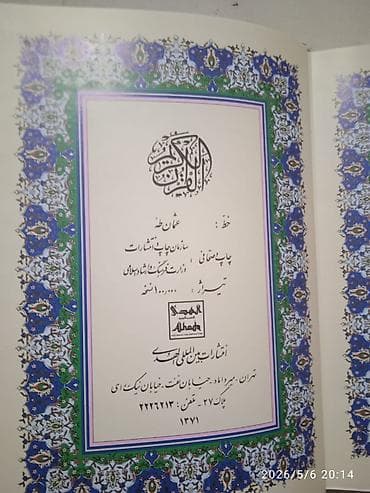 القرآن الكريم
خط : عثمان طه
چاپ و صحافی : سازمان چاپ و انتشارات
وزارت فرهنگ و ارشاد اسلامی
تیراژ : ۱۰۰,۰۰۰ نسخه
الهدی
Alhoda
انتشارات بین المللی الهدی
تهران، میرداماد، خیابان نفت، خیابان یک
پلاک ۲۷ - تلفن : ۲۲۲۶۲۱۳
۱۳۷۱
2026/5/6 20:14